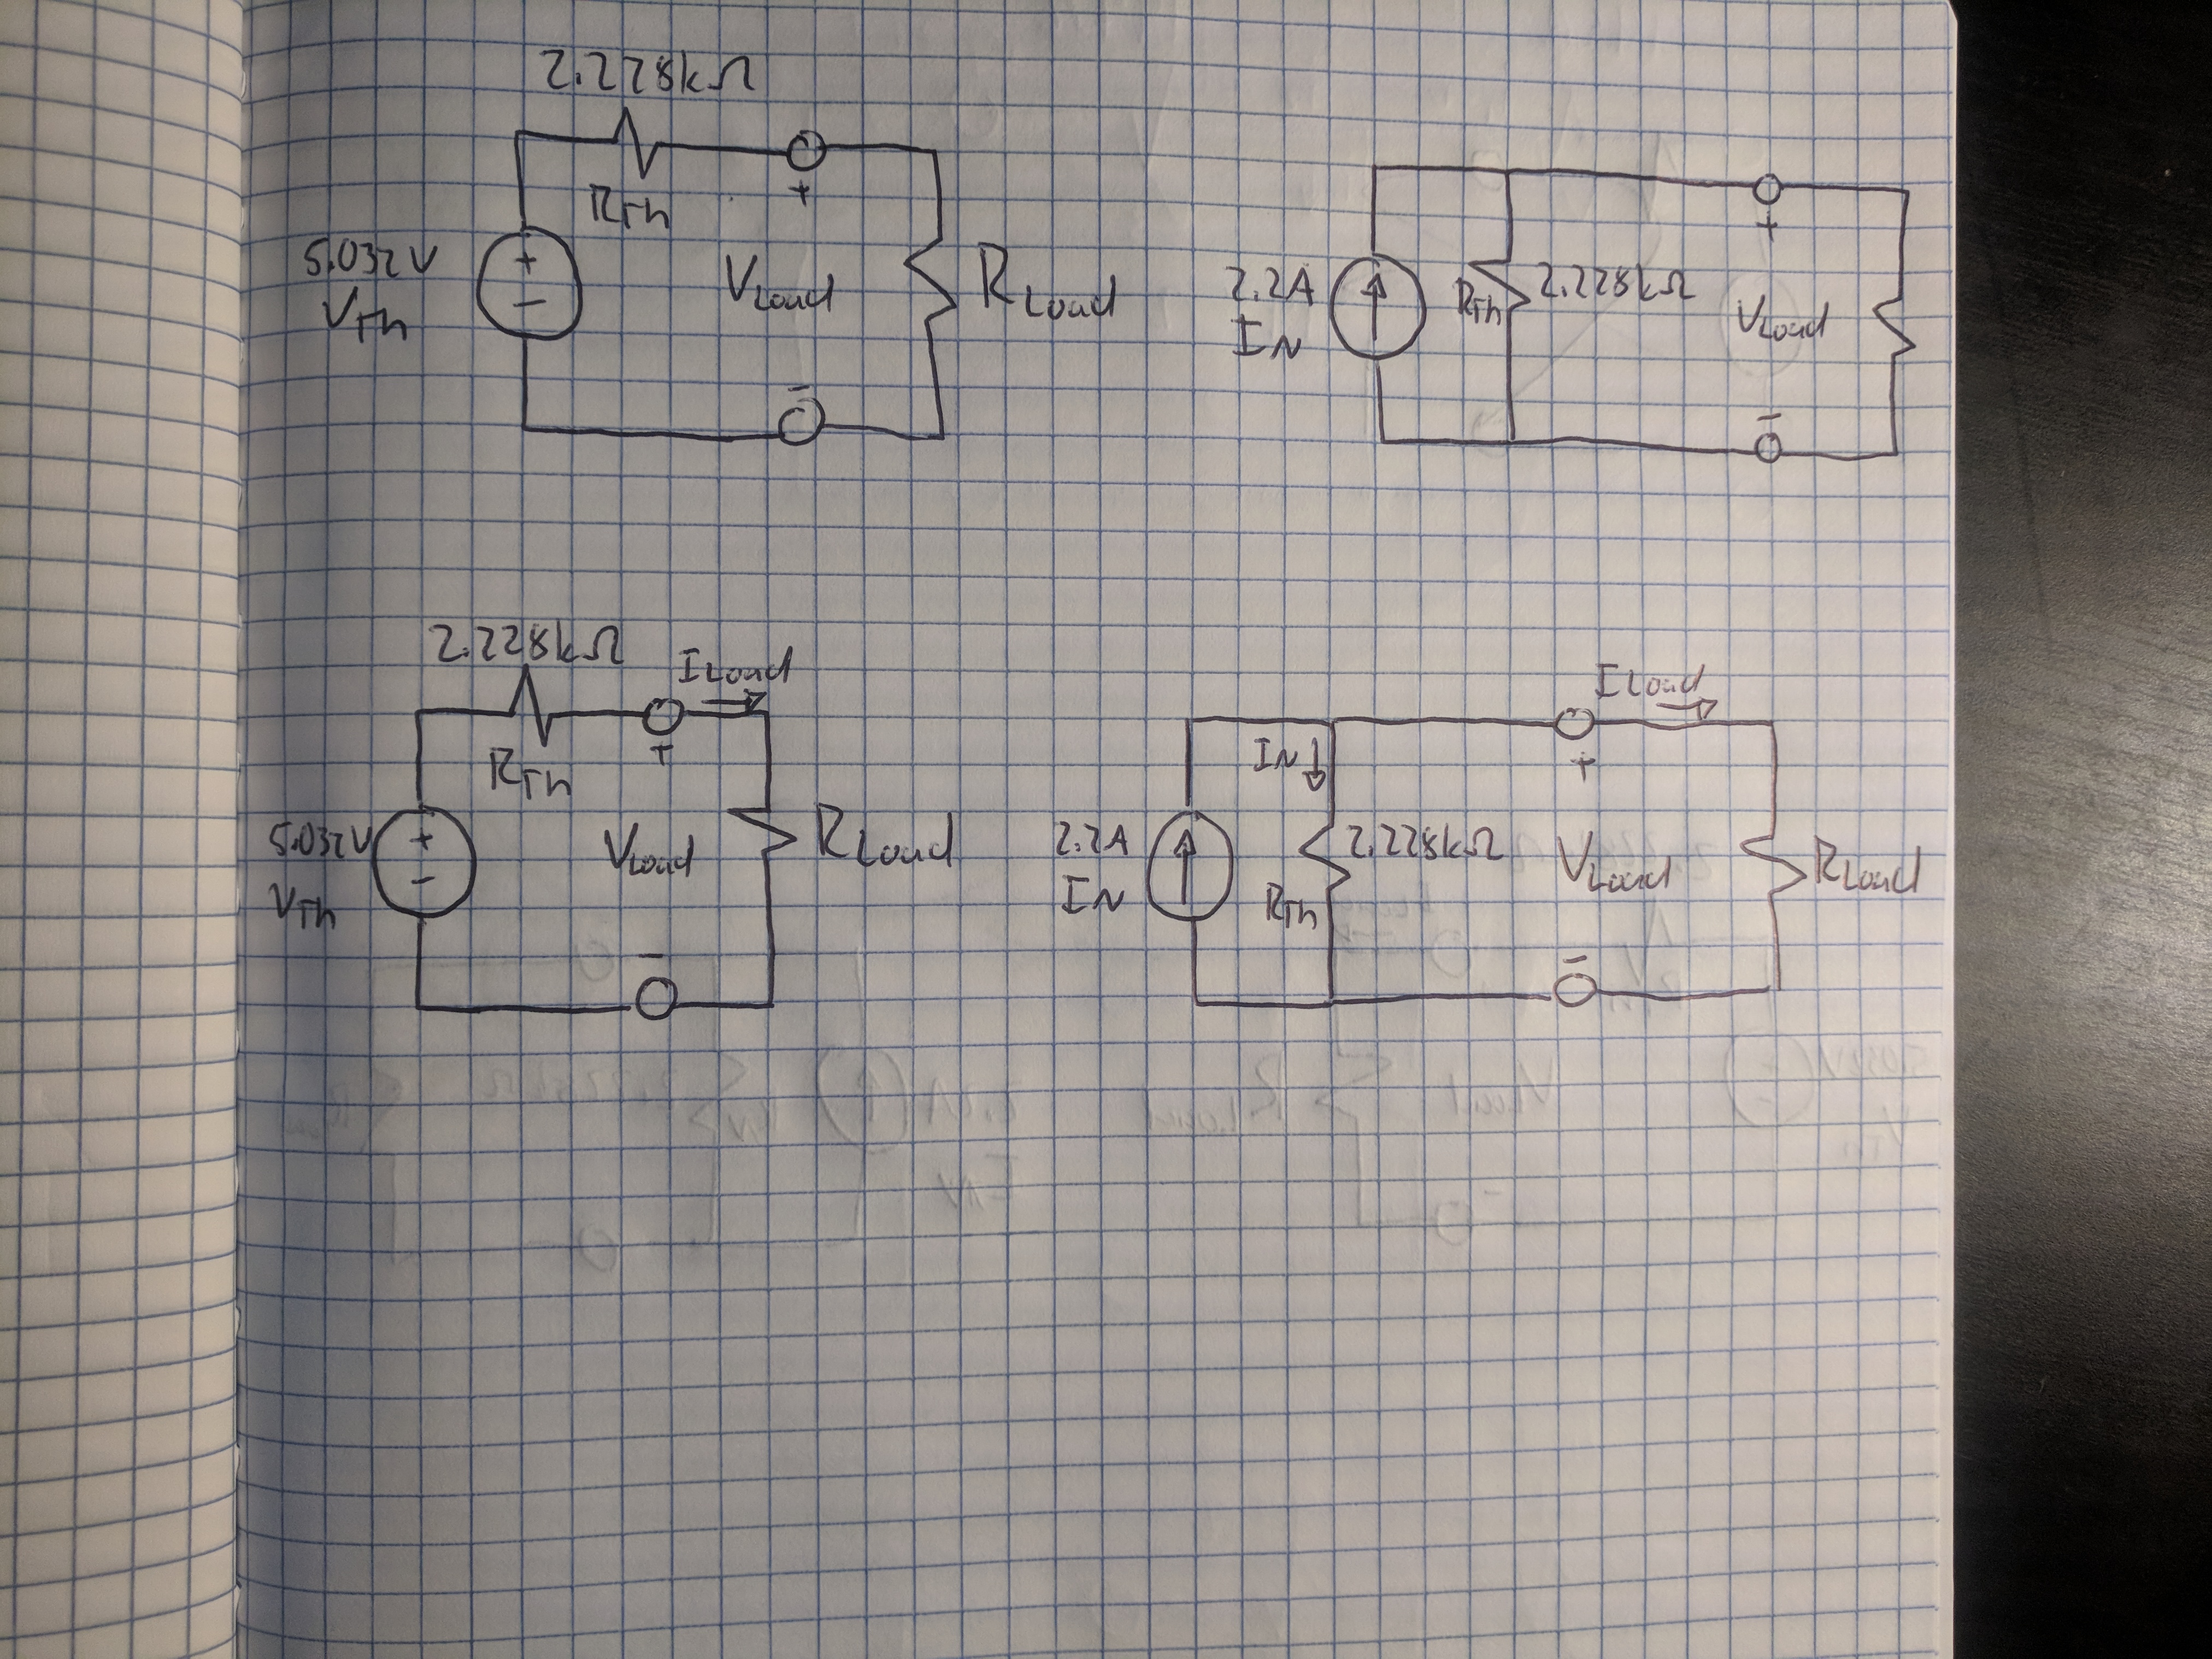 2.228kΩ
RTh
+
5.032V
VTh
+
-
VLoad
RLoad
-
2.2A
IN
RTh
2.228kΩ
+
VLoad
-
2.228kΩ
RTh
ILoad
+
5.032V
VTh
+
-
VLoad
RLoad
-
IN
2.2A
IN
2.228kΩ
RTh
ILoad
+
VLoad
RLoad
-